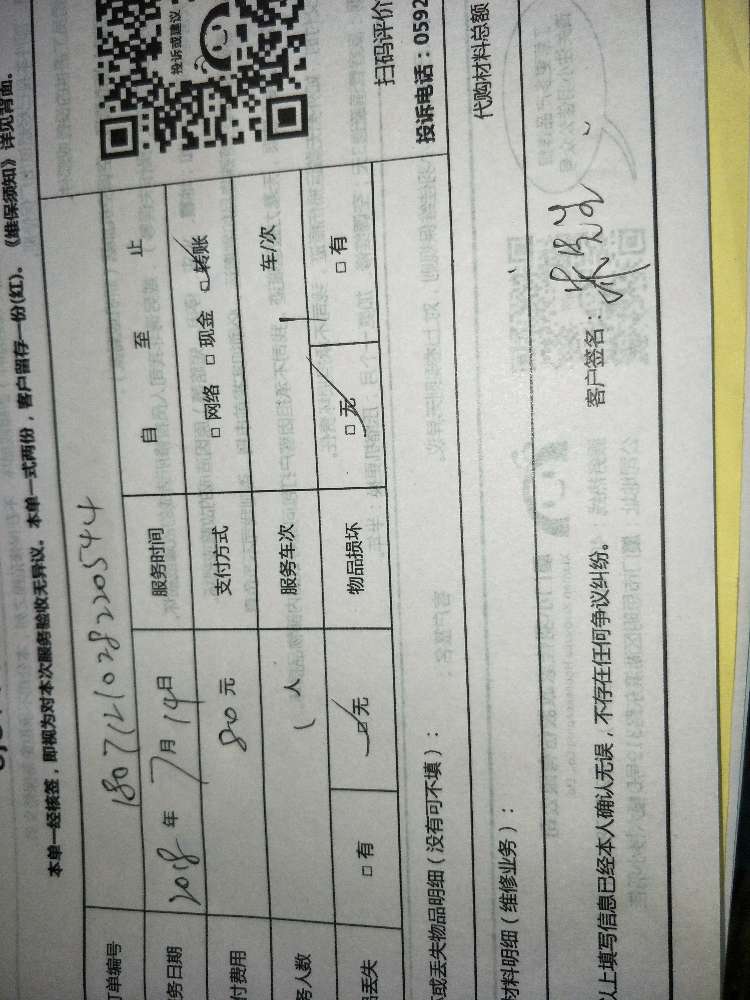 本单一经核签，即视为对本次服务验收无异议。本单一式两份，客户留存一份(红)。《维保须知》详见背面。
订单编号 180712102822054​4
务日期 2018 年 7 月 14 日 服务时间 自 至 止
付费用 80 元 支付方式 □ 网络 □ 现金 □ 转账
务人数 1 人 服务车次 1 车/次
品丢失 □ 有 □ 无 物品损坏 □ 无 □ 有
投诉或建议
扫码评价
投诉电话：0592
或丢失物品明细（没有可不填）：
材料明细（维修业务）：
代购材料总额
以上填写信息已经本人确认无误，不存在任何争议纠纷。 客户签名：